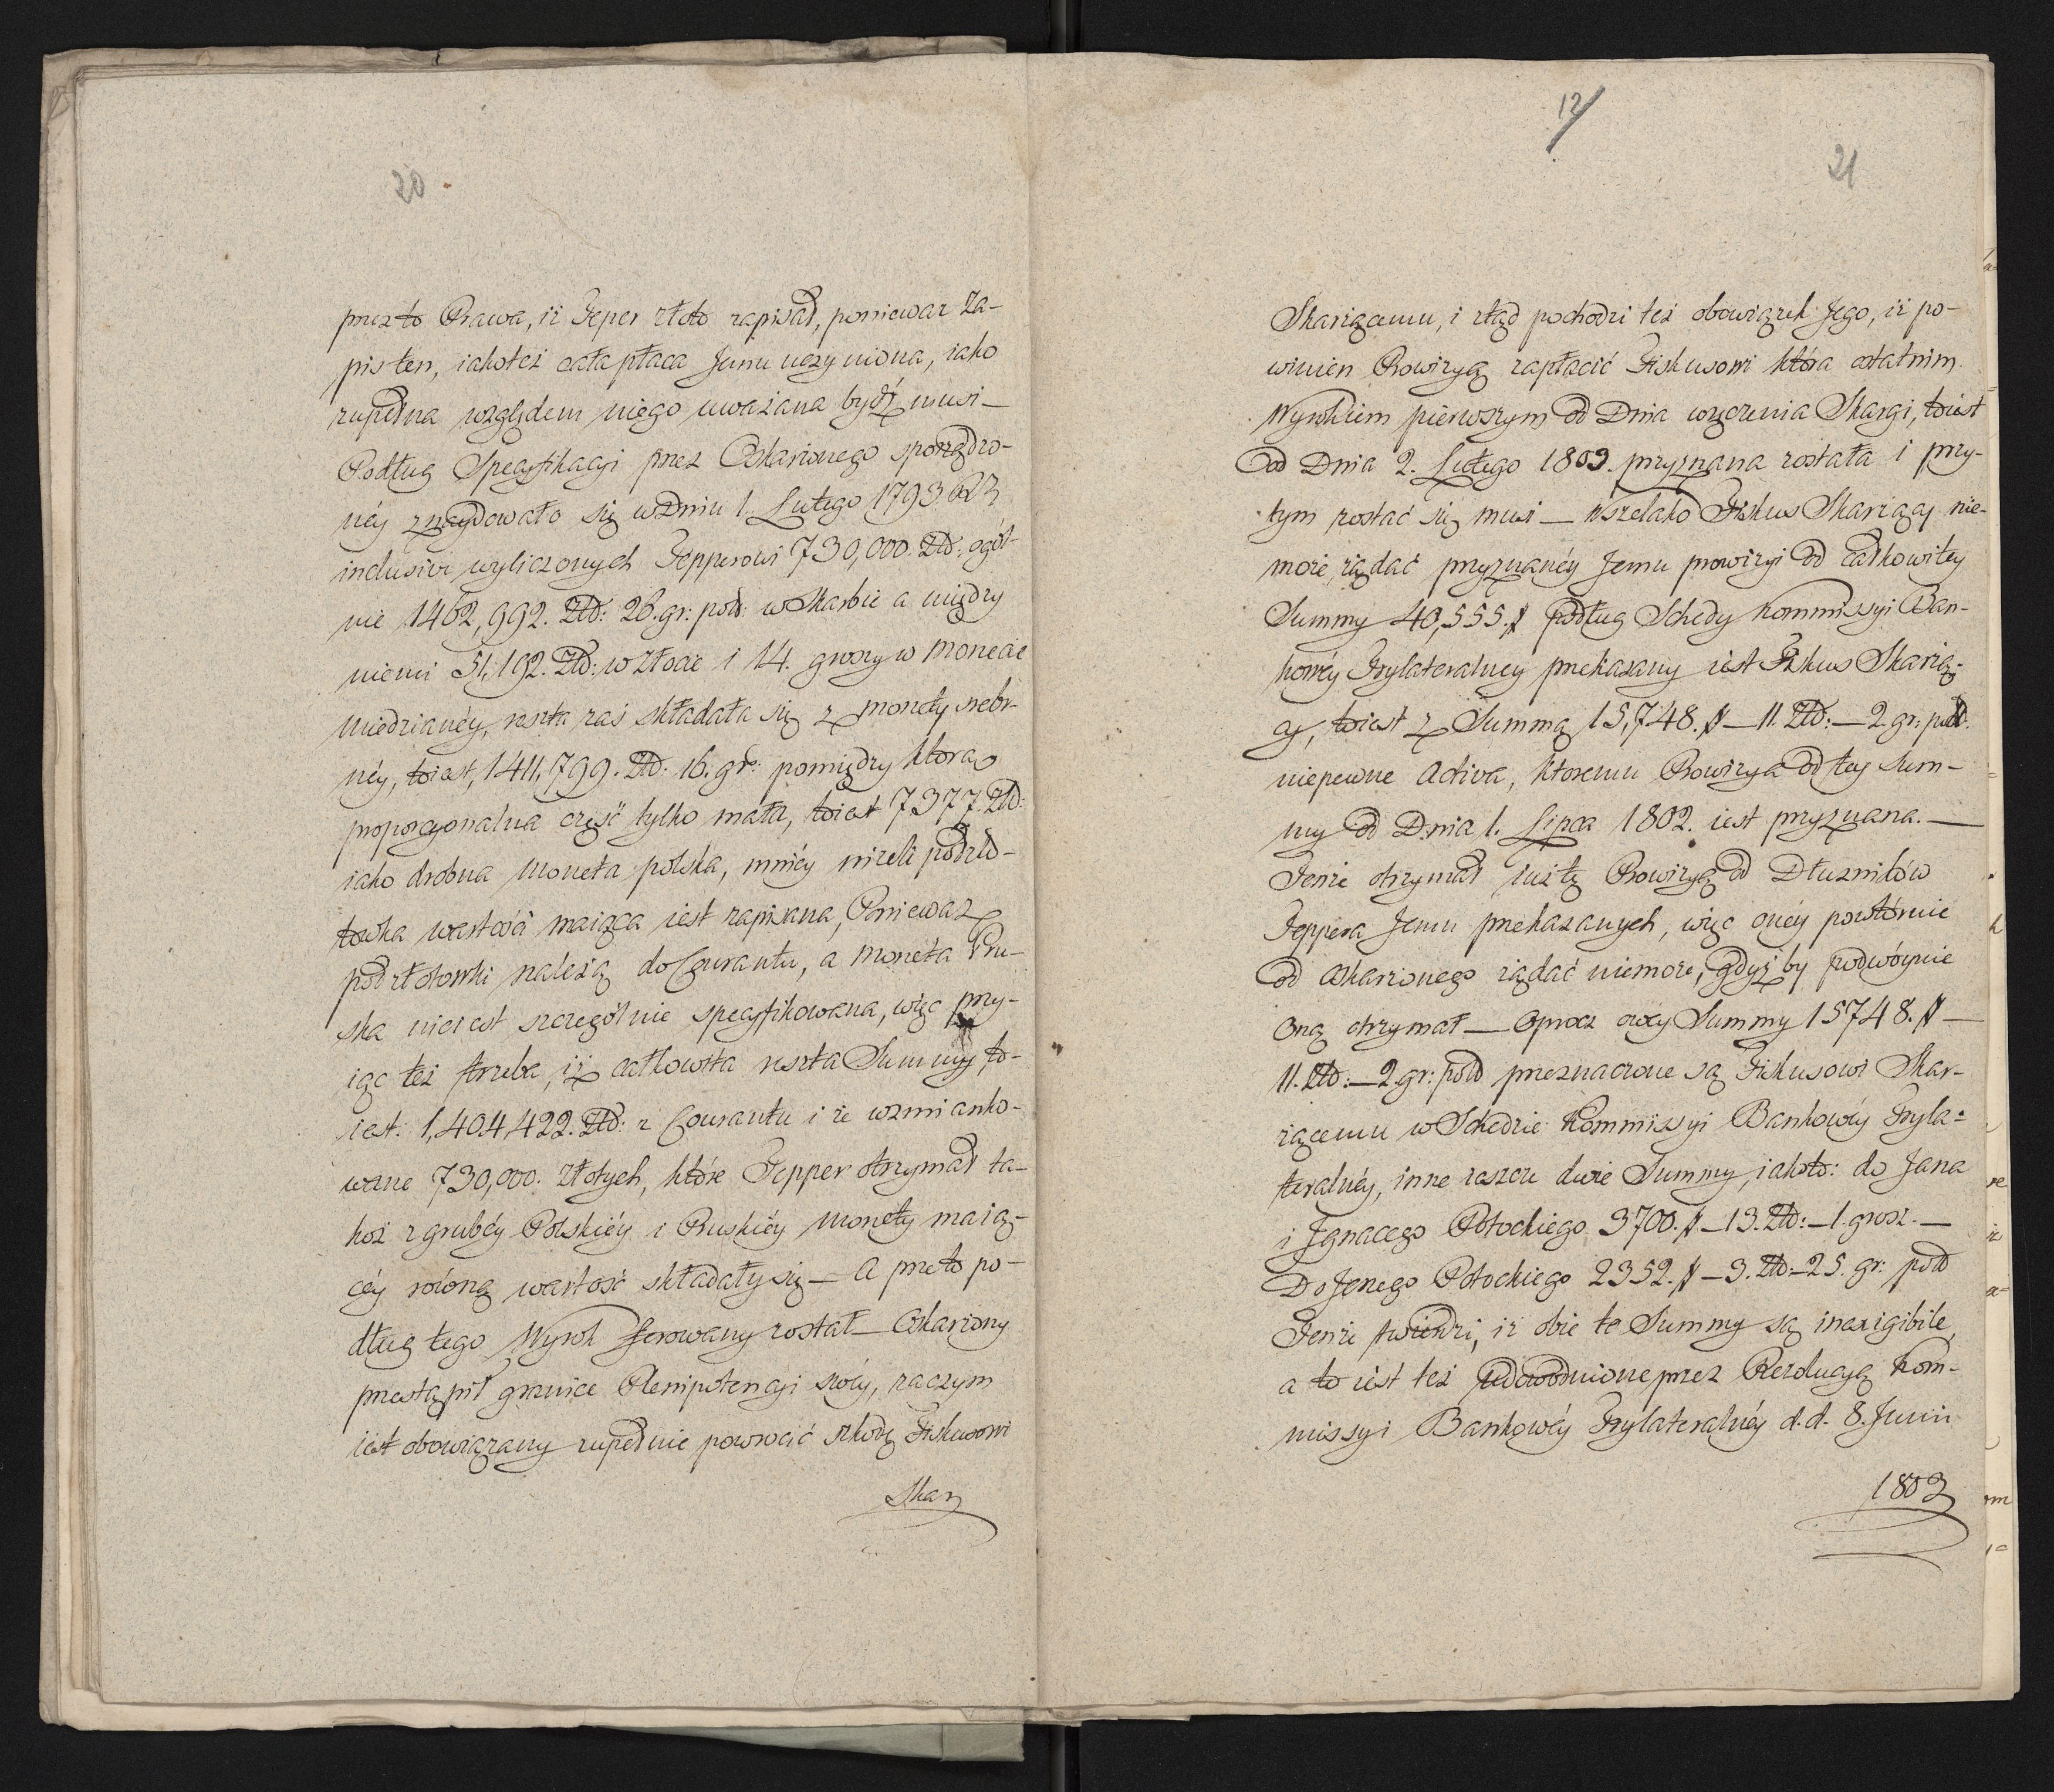 20
przezto Prawa, iż Teper złoto zapisał, ponieważ Za-
pis ten, iakoteż cała płaca Jemu uczyniona, iako
zupełna względem niego uważana bydź muwi_
Podług Specyfikacyi przez Oskarżonego sporządzo-
néy znaydowało się w Dniu 1. Lutego 1793.
inclusive wyliczonych Tepperowi 730,000. Złt: ogól-
nie 1462,992. Złt: 26. gr: poł: w Skarbie a między
niemi 51,192. Złt: w Złocie i 14. groszy w Monecie
miedzianéy, reszta zaś składała się z monety srebr-
néy, toiest, 1411,799. Złt. 16. gr: pomiędzy którą
proporcyonalna część tylko mała, toiest 7377 Złt:
iako drobna moneta polska, mniéy niżeli podzło-
towka wartości maiąca iest zapisana, Ponieważ
półzłotowki należą do Courantu, a moneta Pru-
ska nieiest szczególnie specyfikowana, więc przy-
iąc też trzeba, iż całkowita reszta Summy, to-
iest: 1,404,422. Złt: z Courantu i że wzmianko-
wane 730,000. Złotych, które Tepper otrzymał ta-
koż z grubéy Polskiéy i Pruskiéy Monety maią-
céy równą wartość składały się_ A przeto po-
dług tego Wyrok ferowany został_ Oskarżony
przestąpił granice Plenipotencyi swéy, zaczym
iest obowiązany zupełnie powrócić szkodę Fiskusowi
Skar
12
21
Skarżącemu, i ztąd pochodzi też obowiązek Jego, iż po-
winien Prowizyą zapłacić Fiskusowi która ostatnim
Wyrokiem pierwszym od Dnia wręczenia Skargi, toiest
od Dnia 2. Lutego 1803. przyznana została i przy-
tym zostać się musi_ Wszelako Fiskus Skarżący nie-
może żądać przyznanéy Jemu prowizyi od całkowitey
Summy 40,555.# podług Schedy Kommissyi Ban-
kowéy Trylateralney przekazany iest Fiskus Skarżą-
cy, toiest z Summą 15,748.#_11. Złt:_2 gr: poł.
niepewne Activa, ktoremu Prowizya od tey Sum-
my od Dnia 1. Lipca 1802. iest przyznana._
Tenże otrzymał iuż tę Prowizyą od Dłużników
Teppera Jemu przekazanych, więc onéy powtórnie
od Oskarżonego żądać niemoże, gdyż by podwóynie
oną otrzymał_ Oprocz owey Summy 15748.#_
11. Złt:_2. gr: poł przeznaczone są Fiskusowi Skar-
żącemu w Schedzie Kommissyi Bankowéy Tryla-
teralnéy, inne ieszcze dwie Summy, iakoto: do Jana
i Ignacego Potockiego 3700.#_13. Złt:_1. grosz._
Do Jenego Potockiego 2352.#_3. Złt:_25. gr: poł
Tenże twierdzi, iż obie te Summy są inexigibile,
a to iest też udowodnione przez Rezolucyą Kom-
missyi Bankowéy Trylateralnéy d.d. 8. Junii
1803